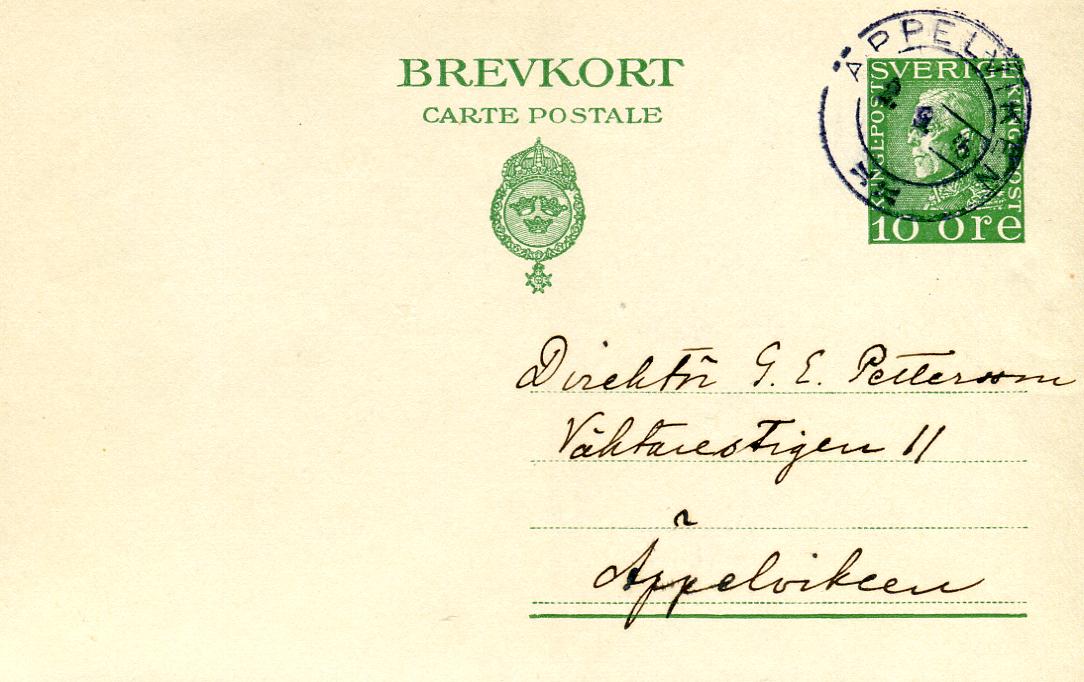 BREVKORT
CARTE POSTALE
ÄPPELVIKEN
SVERIGE
INRL.POST
KUNGL.POST
10 öre
Direktör G. E. Pettersson
Väktarestigen 11
Äppelviken